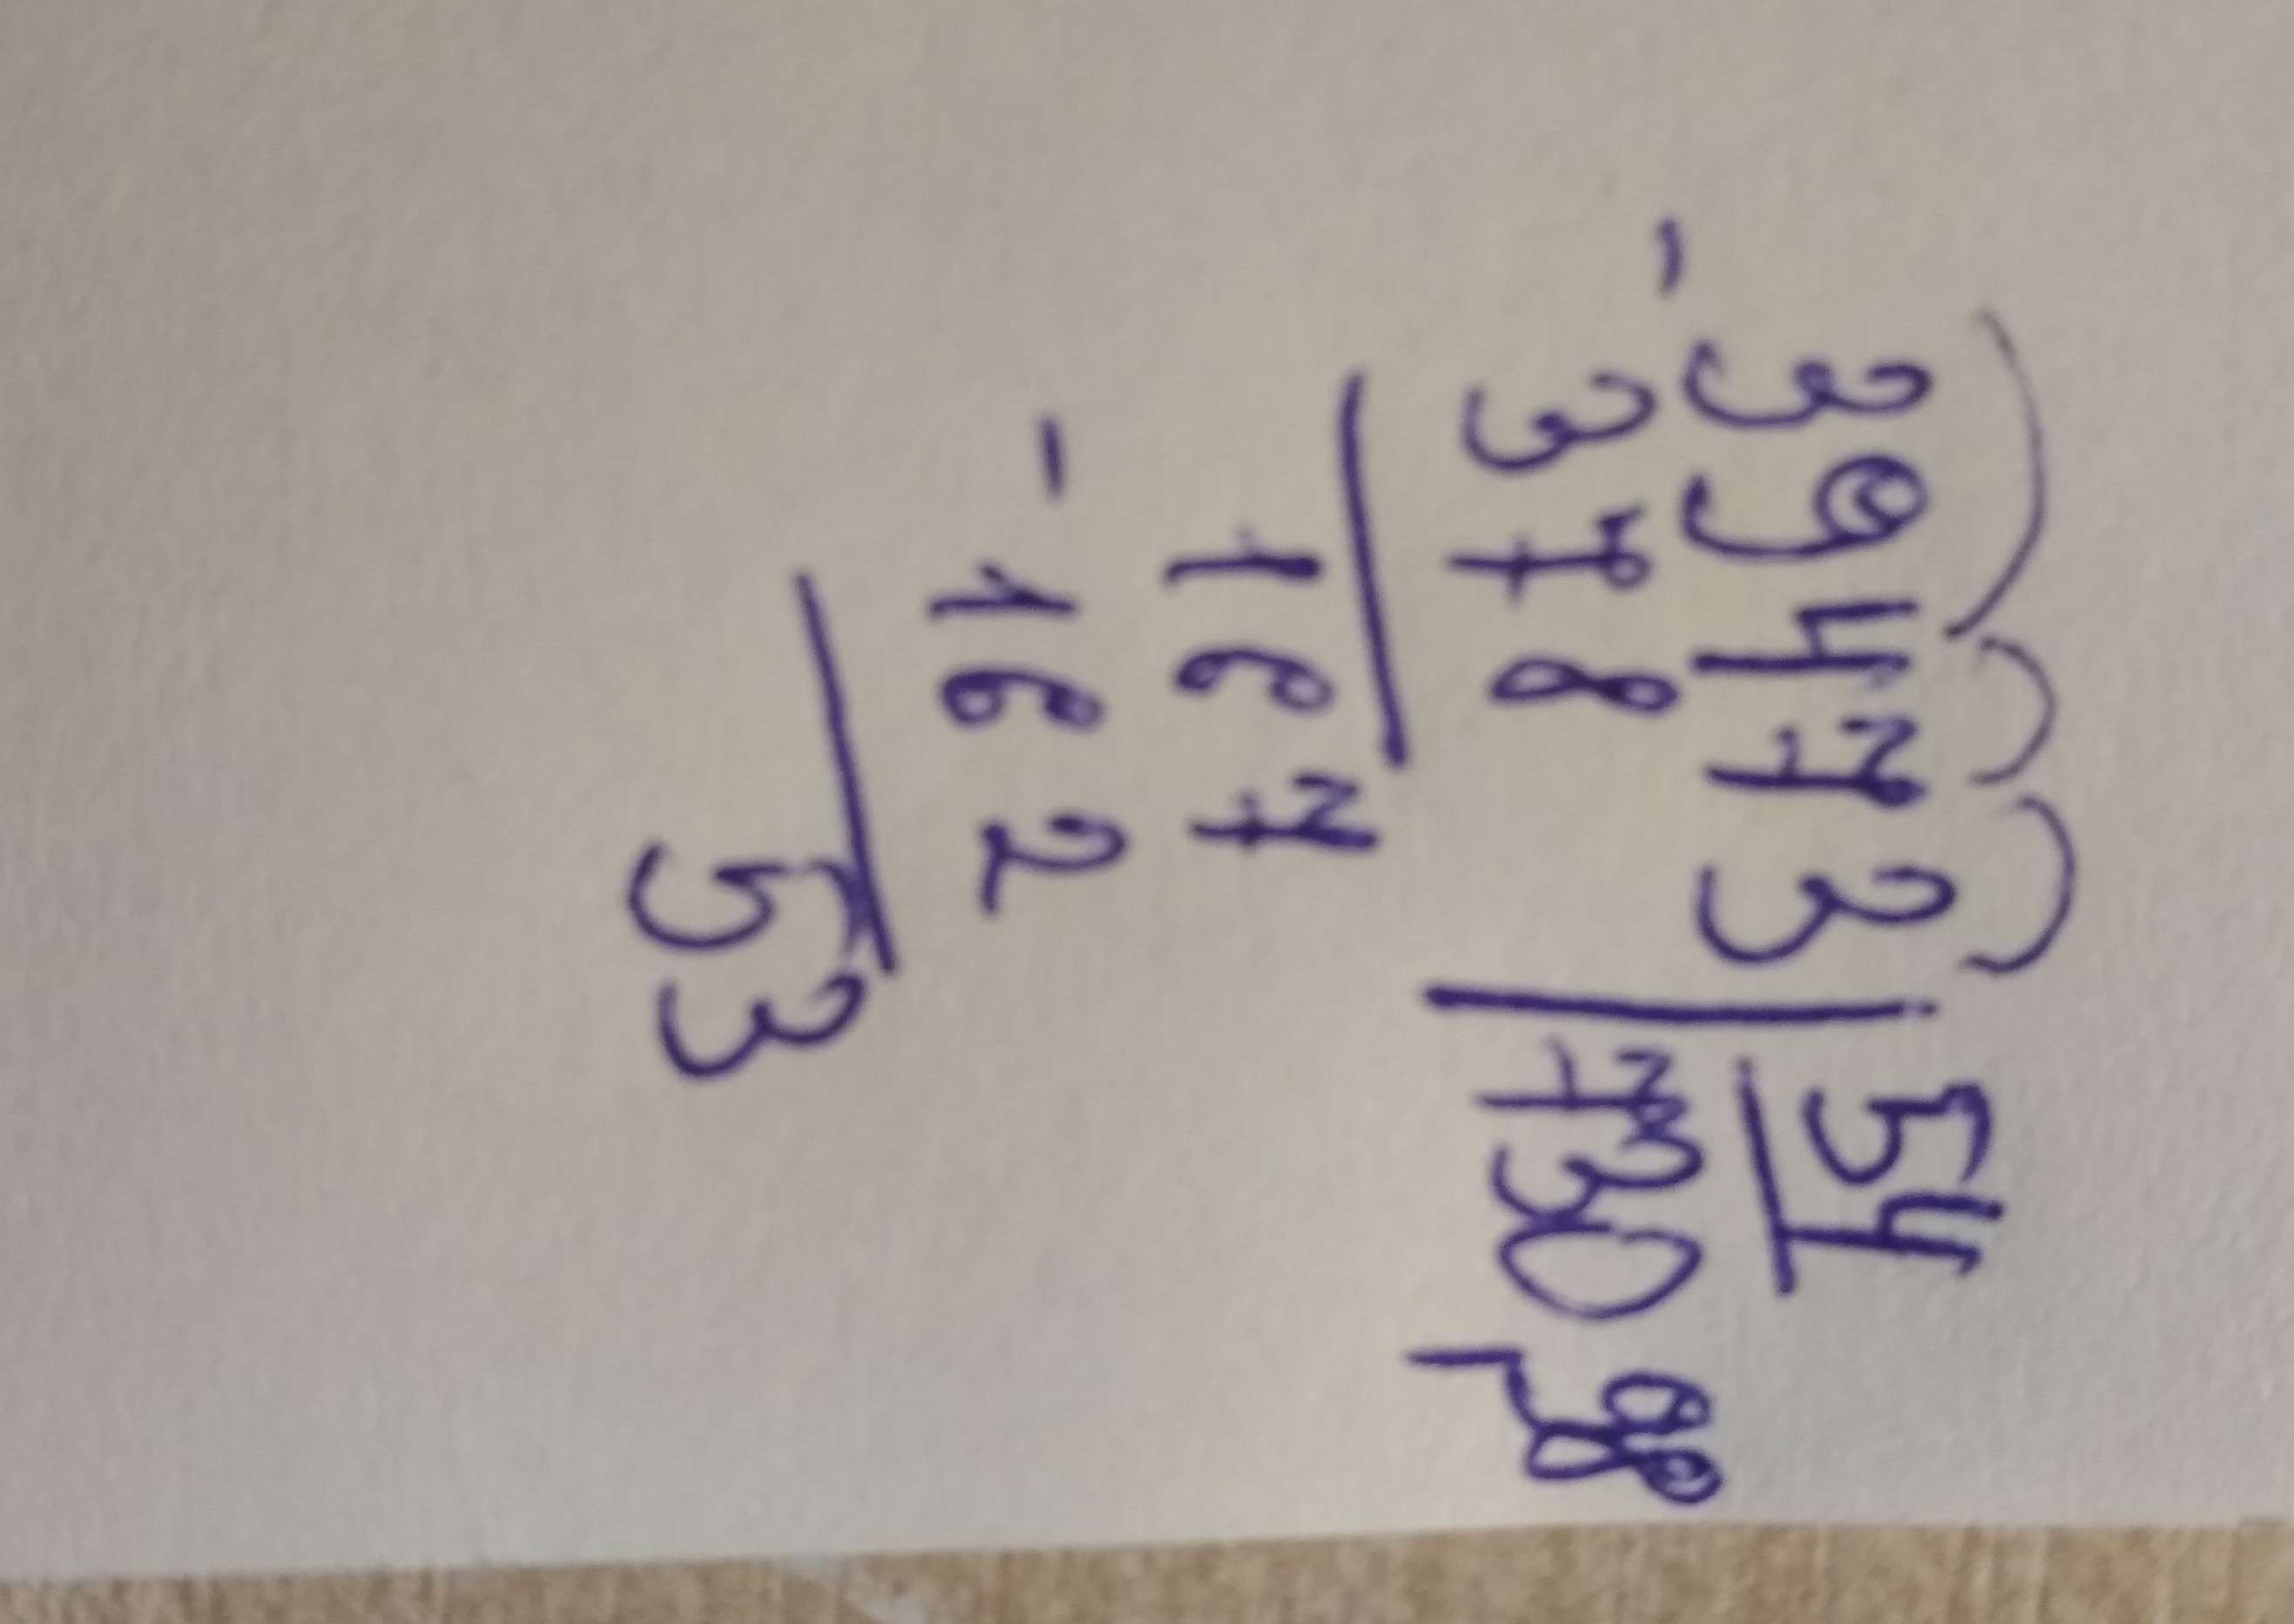 39473 | 54
- 378 | 730,98
167
- 162
53